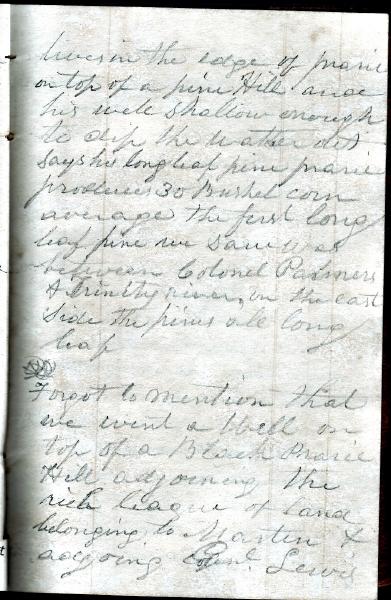 lives in the edge of prarie
on top of a pine Hill and
his well shallow enough
to dip the water out
says his long leaf pine prarie
produces 30 Bushel corn
average the first long
leaf pine we saw was
between Colonel Palmers
& Trinity river, on the east
side the pines all long
leaf
Forgot to mention that
we went a Well on
top of a Black Prarie
Hill adjoining the
rich league of land
belonging to Martin &
adjoing Lewis